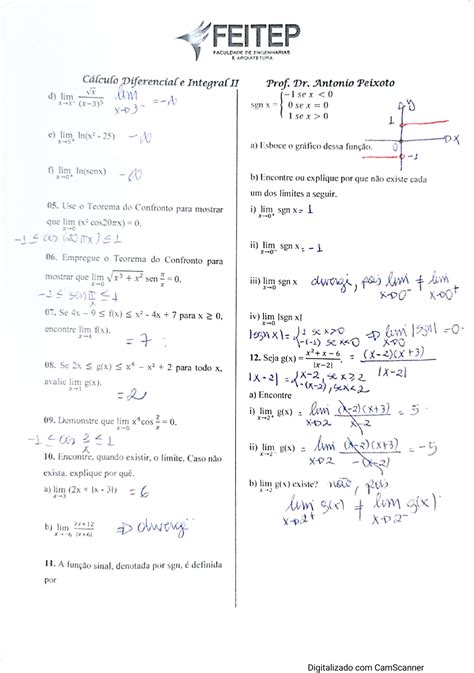 FEITEP
FACULDADE DE ENGENHARIAS
E ARQUITETURA
Cálculo Diferencial e Integral II
Prof. Dr. Antonio Peixoto
d) lim x→3⁻ √x/(x−3)⁵ lim x→3⁻ = −∞
e) lim x→5⁺ ln(x² - 25) −∞
f) lim x→0⁺ ln(senx) −∞
05. Use o Teorema do Confronto para mostrar
que lim x→0 (x² cos20πx) = 0.
−1 ≤ cos (20πx) ≤ 1
06. Empregue o Teorema do Confronto para
mostrar que lim x→0 √(x³ + x²) sen π/x = 0.
−1 ≤ sen π/x ≤ 1
07. Se 4x − 9 ≤ f(x) ≤ x² - 4x + 7 para x ≥ 0,
encontre lim x→4 f(x). = 7
08. Se 2x ≤ g(x) ≤ x⁴ − x² + 2 para todo x,
avalie lim x→1 g(x). = 2
09. Demonstre que lim x→0 x⁴cos 2/x = 0.
−1 ≤ cos 2/x ≤ 1
10. Encontre, quando existir, o limite. Caso não
exista, explique por quê.
a) lim x→3 (2x + |x - 3|) = 6
b) lim x→−6 (2x+12)/|x+6| ⇒ divergi
11. A função sinal, denotada por sgn, é definida
por
sgn x = { −1 se x < 0
0 se x = 0
1 se x > 0
y
1
x
0
−1
a) Esboce o gráfico dessa função.
b) Encontre ou explique por que não existe cada
um dos limites a seguir.
i) lim x→0⁺ sgn x = 1
ii) lim x→0⁻ sgn x = −1
iii) lim x→0 sgn x divergi, pois lim x→0⁻ ≠ lim x→0⁺
iv) lim x→0 |sgn x|
|sgn x| = { 1 se x>0
−(−1) se x<0 ⇒ lim |sgn| = 0
12. Seja g(x) = (x²+x−6)/|x−2| = (x−2)(x+3)/|x−2|
|x−2| = { x−2, se x≥2
−(x−2), se x<2
a) Encontre
i) lim x→2⁺ g(x) = lim x→2 (x−2)(x+3)/x−2 = 5
ii) lim x→2⁻ g(x) = lim x→2 (x−2)(x+3)/−(x−2) = −5
b) lim x→2 g(x) existe? não, pois
lim x→2⁺ g(x) ≠ lim x→2⁻ g(x)
Digitalizado com CamScanner